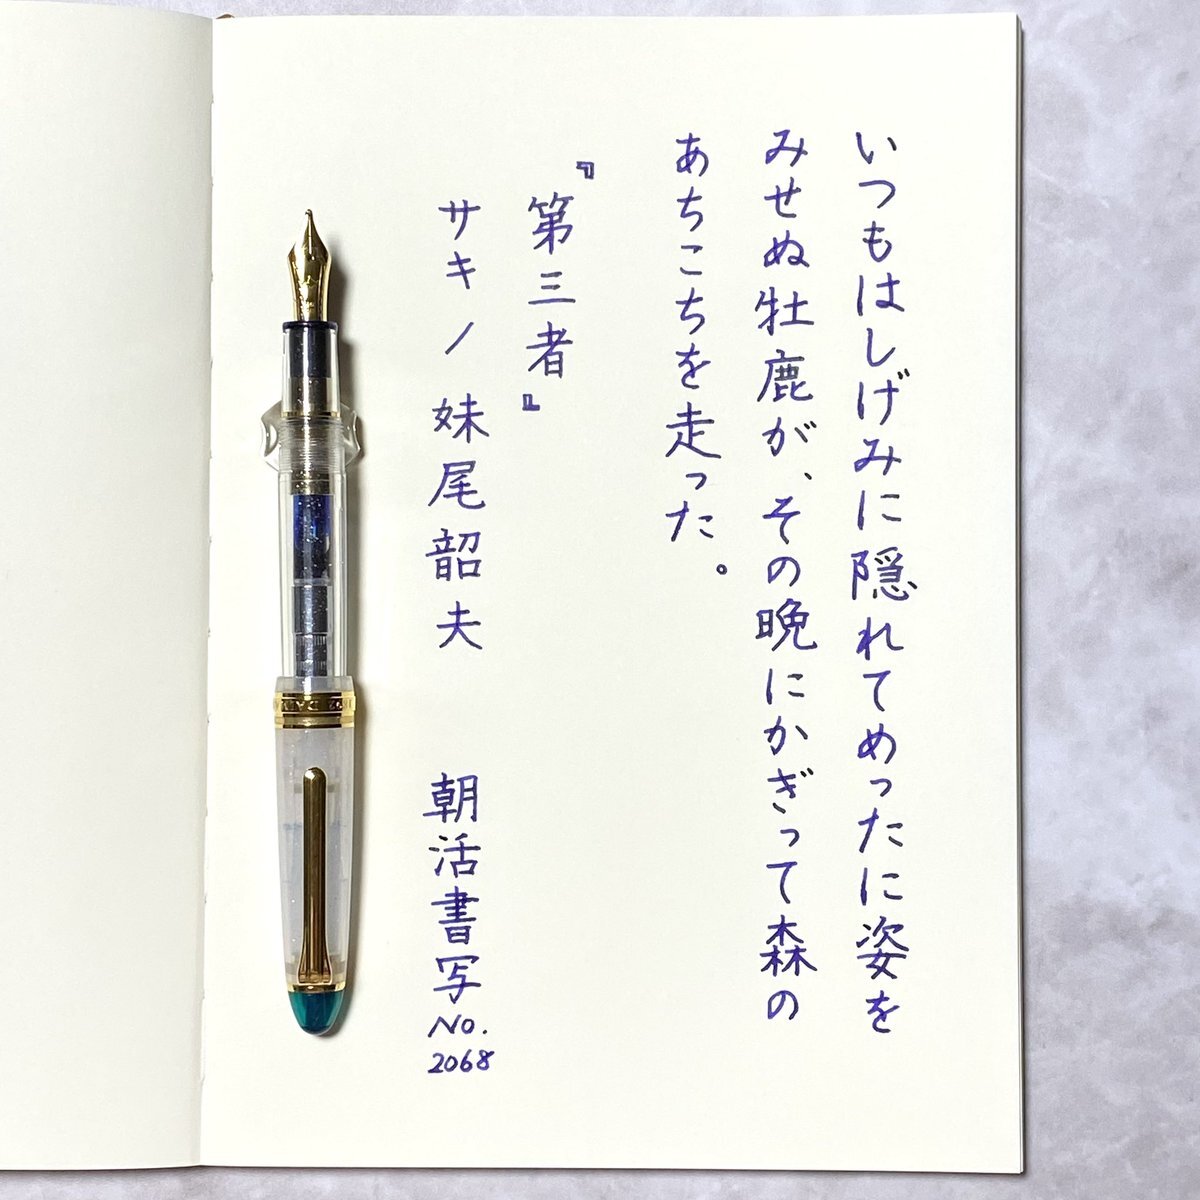 いつもはしげみに隠れてめったに姿を
みせぬ牡鹿が、その晩にかぎって森の
あちこちを走った。
『第三者』
サキ／妹尾韶夫
朝活書写
No.
2068